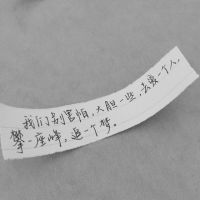 我们别害怕，大胆一些，去爱一个人，
攀一座峰，追一个梦。